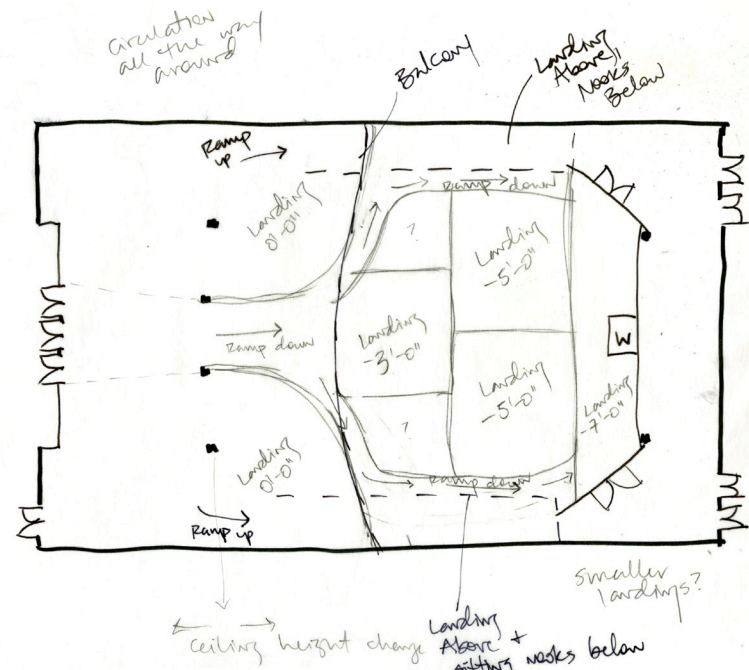 circulation
all the way
around
Balcony
Landing
Above,
Nooks
Below
Ramp
up
Landing
0'-0"
Ramp down
?
Landing
-5'-0"
Ramp down
Landing
-3'-0"
W
Landing
-5'-0"
Landing
-7'-0"
?
Landing
0'-0"
Ramp down
Ramp up
smaller
landings?
ceiling height change
Landing
Above +
nooks below